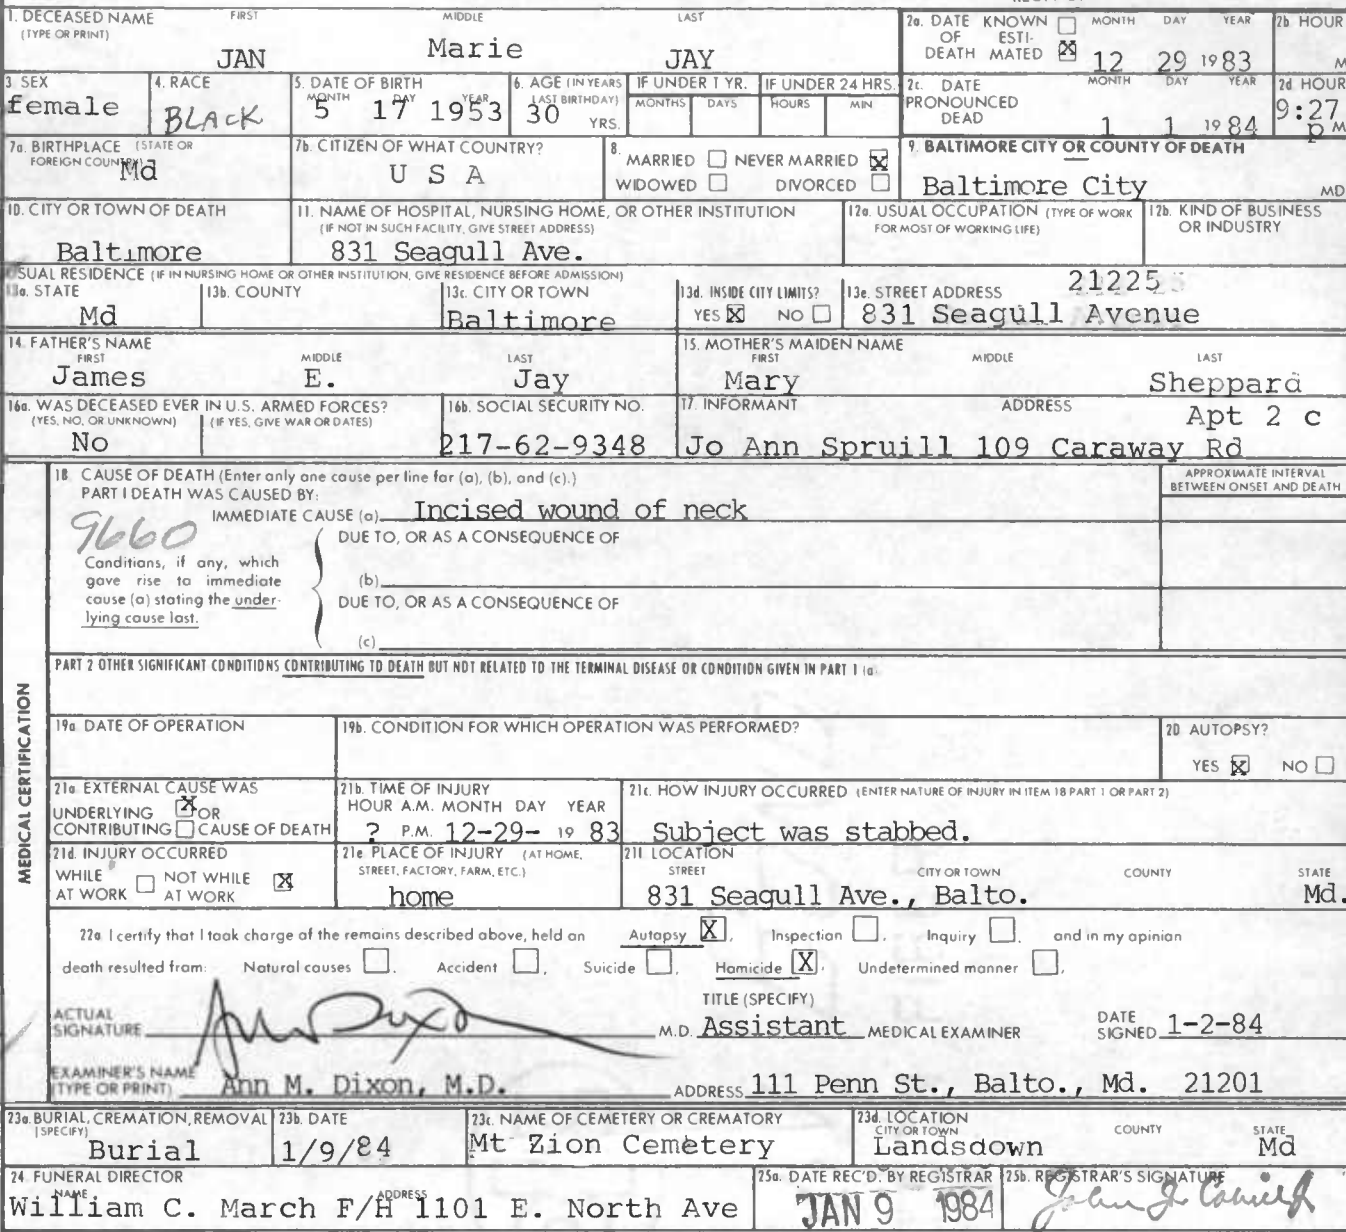 1. DECEASED NAME (TYPE OR PRINT) FIRST MIDDLE LAST
JAN Marie JAY
2a. DATE OF DEATH KNOWN ☐ ESTIMATED ☒ MONTH DAY YEAR
12 29 1983
2b HOUR
M
3. SEX
female
4. RACE
BLACK
5. DATE OF BIRTH
MONTH DAY YEAR
5 17 1953
6. AGE (IN YEARS LAST BIRTHDAY)
30 YRS.
IF UNDER 1 YR. IF UNDER 24 HRS.
MONTHS DAYS HOURS MIN
2c. DATE PRONOUNCED DEAD MONTH DAY YEAR
1 1 1984
2d HOUR
9:27 P M
7a. BIRTHPLACE (STATE OR FOREIGN COUNTRY)
Md
7b. CITIZEN OF WHAT COUNTRY?
U S A
8. MARRIED ☐ NEVER MARRIED ☒
WIDOWED ☐ DIVORCED ☐
9. BALTIMORE CITY OR COUNTY OF DEATH
Baltimore City MD
10. CITY OR TOWN OF DEATH
Baltimore
11. NAME OF HOSPITAL, NURSING HOME, OR OTHER INSTITUTION
(IF NOT IN SUCH FACILITY, GIVE STREET ADDRESS)
831 Seagull Ave.
12a. USUAL OCCUPATION (TYPE OF WORK FOR MOST OF WORKING LIFE)
12b. KIND OF BUSINESS OR INDUSTRY
USUAL RESIDENCE (IF IN NURSING HOME OR OTHER INSTITUTION, GIVE RESIDENCE BEFORE ADMISSION)
13a. STATE
Md
13b. COUNTY
13c. CITY OR TOWN
Baltimore
13d. INSIDE CITY LIMITS?
YES ☒ NO ☐
13e. STREET ADDRESS 21225
831 Seagull Avenue
14. FATHER'S NAME
FIRST MIDDLE LAST
James E. Jay
15. MOTHER'S MAIDEN NAME
FIRST MIDDLE LAST
Mary Sheppard
16a. WAS DECEASED EVER IN U.S. ARMED FORCES?
(YES, NO, OR UNKNOWN) (IF YES, GIVE WAR OR DATES)
No
16b. SOCIAL SECURITY NO.
217-62-9348
17. INFORMANT ADDRESS
Apt 2 c
Jo Ann Spruill 109 Caraway Rd
MEDICAL CERTIFICATION
18. CAUSE OF DEATH (Enter only one cause per line for (a), (b), and (c).)
PART I DEATH WAS CAUSED BY:
APPROXIMATE INTERVAL BETWEEN ONSET AND DEATH
9660
IMMEDIATE CAUSE (a) Incised wound of neck
DUE TO, OR AS A CONSEQUENCE OF
Conditions, if any, which gave rise to immediate cause (a) stating the underlying cause last.
(b)
DUE TO, OR AS A CONSEQUENCE OF
(c)
PART 2 OTHER SIGNIFICANT CONDITIONS CONTRIBUTING TO DEATH BUT NOT RELATED TO THE TERMINAL DISEASE OR CONDITION GIVEN IN PART 1 (a).
19a DATE OF OPERATION
19b. CONDITION FOR WHICH OPERATION WAS PERFORMED?
20 AUTOPSY?
YES ☒ NO ☐
21a. EXTERNAL CAUSE WAS
UNDERLYING ☒ OR
CONTRIBUTING ☐ CAUSE OF DEATH
21b. TIME OF INJURY
HOUR A.M. MONTH DAY YEAR
? P.M. 12-29- 19 83
21c. HOW INJURY OCCURRED (ENTER NATURE OF INJURY IN ITEM 18 PART 1 OR PART 2)
Subject was stabbed.
21d. INJURY OCCURRED
WHILE AT WORK ☐ NOT WHILE AT WORK ☒
21e. PLACE OF INJURY (AT HOME, STREET, FACTORY, FARM, ETC.)
home
21f. LOCATION
STREET CITY OR TOWN COUNTY STATE
831 Seagull Ave., Balto. Md.
22a I certify that I took charge of the remains described above, held an Autopsy ☒, Inspection ☐, Inquiry ☐, and in my opinion
death resulted from: Natural causes ☐, Accident ☐, Suicide ☐, Homicide ☒, Undetermined manner ☐,
ACTUAL SIGNATURE Ann Dixon M.D.
TITLE (SPECIFY)
Assistant MEDICAL EXAMINER
DATE SIGNED 1-2-84
EXAMINER'S NAME (TYPE OR PRINT) Ann M. Dixon, M.D.
ADDRESS 111 Penn St., Balto., Md. 21201
23a. BURIAL, CREMATION, REMOVAL (SPECIFY)
Burial
23b. DATE
1/9/84
23c. NAME OF CEMETERY OR CREMATORY
Mt Zion Cemetery
23d. LOCATION
CITY OR TOWN COUNTY STATE
Landsdown Md
24. FUNERAL DIRECTOR
NAME ADDRESS
William C. March F/H 1101 E. North Ave
25a. DATE REC'D. BY REGISTRAR
JAN 9 1984
25b. REGISTRAR'S SIGNATURE